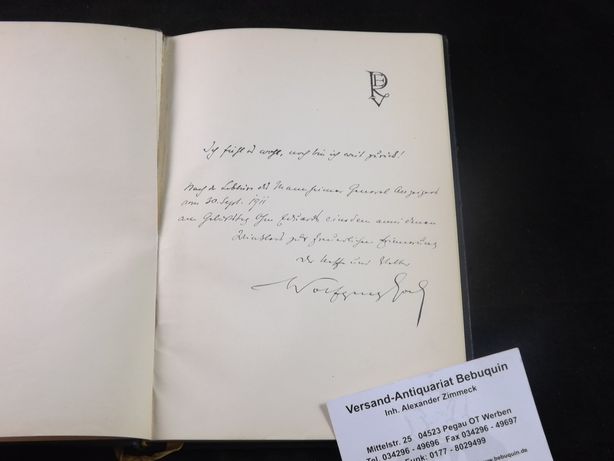 Ich fühl es wohl, noch bin ich weit zurück!
Nach der Lektüre des Mannheimer General Anzeigers
vom 30. Sept. 1911
am Geburtstag Ohm Eduards
zur freundlichen Erinnerung
Der Neffe und Vetter
Wolfgang
Versand-Antiquariat Bebuquin
Inh. Alexander Zimmeck
Mittelstr. 25 04523 Pegau OT Werben
Tel 034296 - 49696 Fax 034296 - 49697
Funk: 0177 - 8029499
www.bebuquin.de